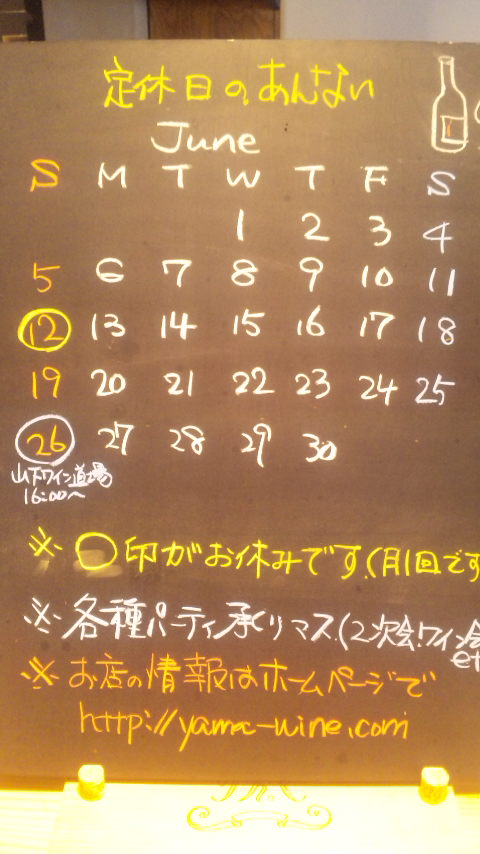 定休日のあんない
June
S M T W T F S
1 2 3 4
5 6 7 8 9 10 11
12 13 14 15 16 17 18
19 20 21 22 23 24 25
26 27 28 29 30
山下ワイン道場
16:00〜
※ ○印がお休みです。(月1回です
※ 各種パーティ承りマス(2次会、ワイン会
et
※ お店の情報はホームページで
http://yama-wine.com